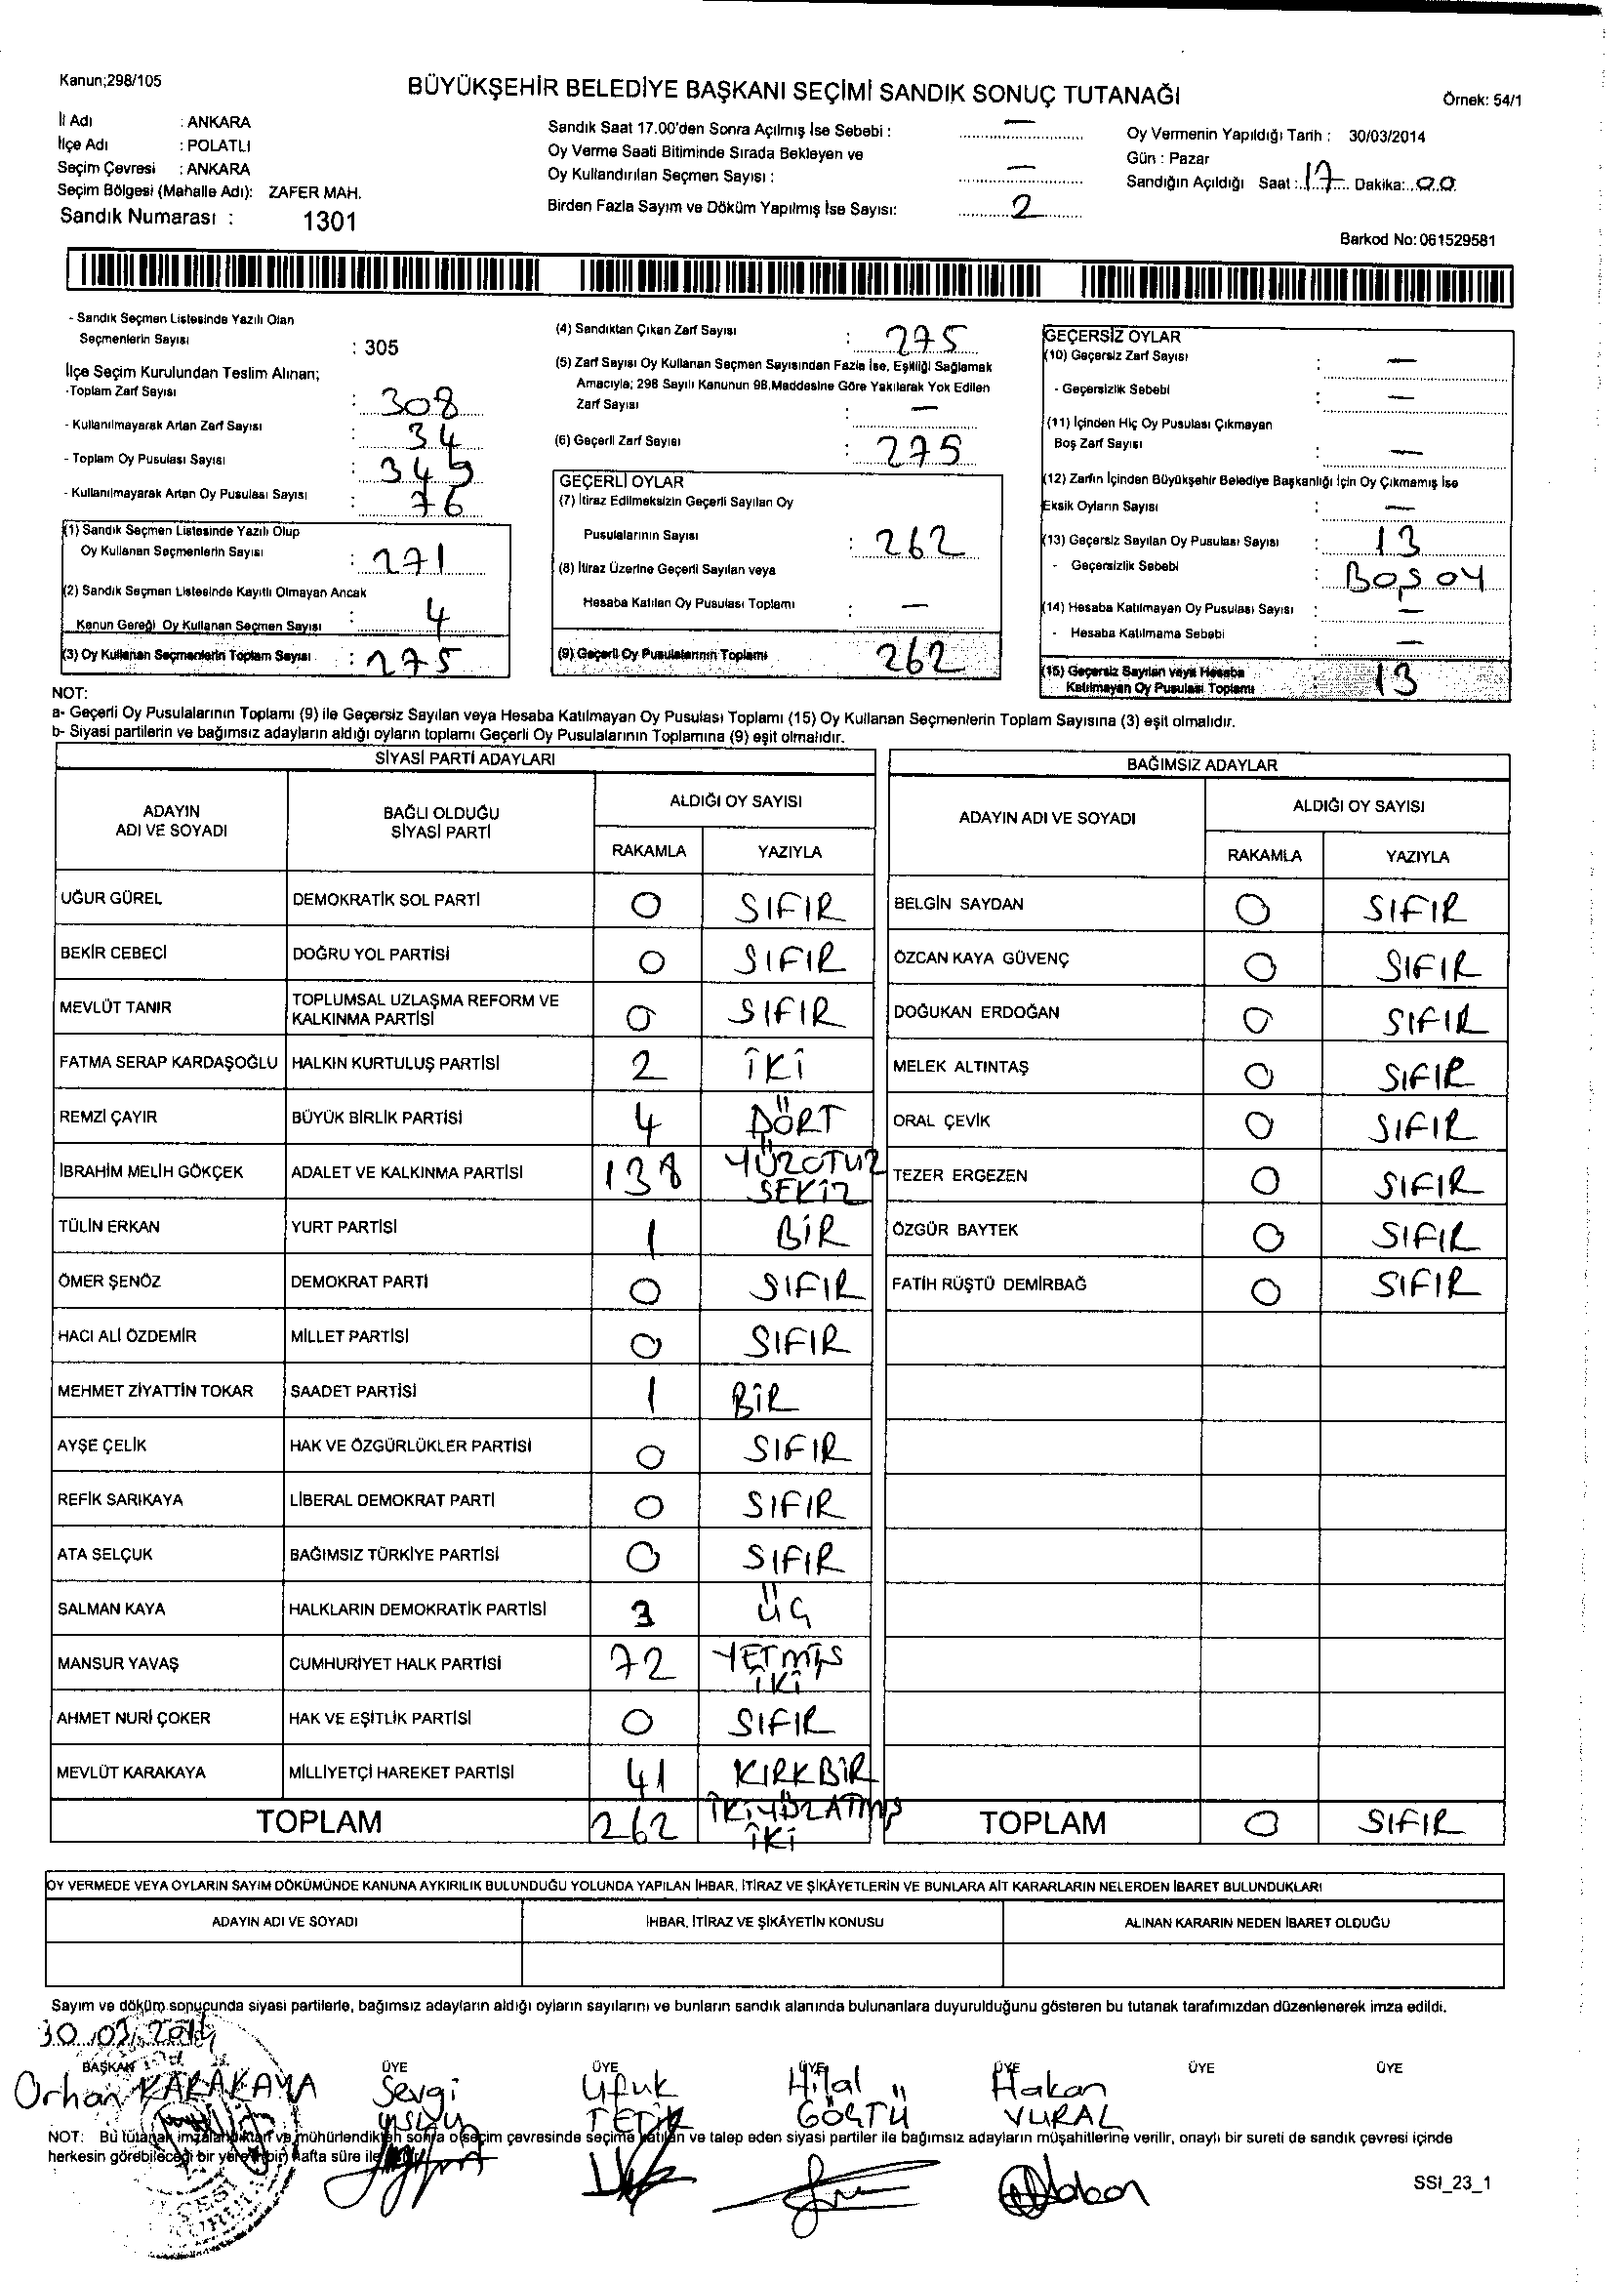 Kanun;298/105
BÜYÜKŞEHİR BELEDİYE BAŞKANI SEÇİMİ SANDIK SONUÇ TUTANAĞI
Örnek: 54/1
İl Adı : ANKARA
İlçe Adı : POLATLI
Seçim Çevresi : ANKARA
Seçim Bölgesi (Mahalle Adı): ZAFER MAH.
Sandık Numarası : 1301
Sandık Saat 17.00'den Sonra Açılmış İse Sebebi : —
Oy Verme Saati Bitiminde Sırada Bekleyen ve
Oy Kullandırılan Seçmen Sayısı : —
Birden Fazla Sayım ve Döküm Yapılmış İse Sayısı: 2
Oy Vermenin Yapıldığı Tarih : 30/03/2014
Gün : Pazar
Sandığın Açıldığı Saat : 17 Dakika: 00
Barkod No: 061529581
- Sandık Seçmen Listesinde Yazılı Olan
Seçmenlerin Sayısı : 305
İlçe Seçim Kurulundan Teslim Alınan;
-Toplam Zarf Sayısı : 308
- Kullanılmayarak Artan Zarf Sayısı : 34
- Toplam Oy Pusulası Sayısı : 345
- Kullanılmayarak Artan Oy Pusulası Sayısı : 76
(1) Sandık Seçmen Listesinde Yazılı Olup
Oy Kullanan Seçmenlerin Sayısı : 271
(2) Sandık Seçmen Listesinde Kayıtlı Olmayan Ancak
Kanun Gereği Oy Kullanan Seçmen Sayısı : 4
(3) Oy Kullanan Seçmenlerin Toplam Sayısı : 275
(4) Sandıktan Çıkan Zarf Sayısı : 275
(5) Zarf Sayısı Oy Kullanan Seçmen Sayısından Fazla İse, Eşitliği Sağlamak
Amacıyla; 298 Sayılı Kanunun 98.Maddesine Göre Yakılarak Yok Edilen
Zarf Sayısı : —
(6) Geçerli Zarf Sayısı : 275
GEÇERLİ OYLAR
(7) İtiraz Edilmeksizin Geçerli Sayılan Oy
Pusulalarının Sayısı : 262
(8) İtiraz Üzerine Geçerli Sayılan veya
Hesaba Katılan Oy Pusulası Toplamı : —
(9) Geçerli Oy Pusulalarının Toplamı 262
GEÇERSİZ OYLAR
(10) Geçersiz Zarf Sayısı : —
- Geçersizlik Sebebi : —
(11) İçinden Hiç Oy Pusulası Çıkmayan
Boş Zarf Sayısı : —
(12) Zarfın İçinden Büyükşehir Belediye Başkanlığı İçin Oy Çıkmamış İse
Eksik Oyların Sayısı : —
(13) Geçersiz Sayılan Oy Pusulası Sayısı : 13
- Geçersizlik Sebebi : BOŞ OY
(14) Hesaba Katılmayan Oy Pusulası Sayısı : —
- Hesaba Katılmama Sebebi : —
(15) Geçersiz Sayılan veya Hesaba
Katılmayan Oy Pusulası Toplamı : 13
NOT:
a- Geçerli Oy Pusulalarının Toplamı (9) ile Geçersiz Sayılan veya Hesaba Katılmayan Oy Pusulası Toplamı (15) Oy Kullanan Seçmenlerin Toplam Sayısına (3) eşit olmalıdır.
b- Siyasi partilerin ve bağımsız adayların aldığı oyların toplamı Geçerli Oy Pusulalarının Toplamına (9) eşit olmalıdır.
SİYASİ PARTİ ADAYLARI
ADAYIN ADI VE SOYADI BAĞLI OLDUĞU SİYASİ PARTİ ALDIĞI OY SAYISI
RAKAMLA YAZIYLA
UĞUR GÜREL DEMOKRATİK SOL PARTİ 0 SIFIR
BEKİR CEBECİ DOĞRU YOL PARTİSİ 0 SIFIR
MEVLÜT TANIR TOPLUMSAL UZLAŞMA REFORM VE KALKINMA PARTİSİ 0 SIFIR
FATMA SERAP KARDAŞOĞLU HALKIN KURTULUŞ PARTİSİ 2 İKİ
REMZİ ÇAYIR BÜYÜK BİRLİK PARTİSİ 4 DÖRT
İBRAHİM MELİH GÖKÇEK ADALET VE KALKINMA PARTİSİ 138 YÜZOTUZ SEKİZ
TÜLİN ERKAN YURT PARTİSİ 1 BİR
ÖMER ŞENÖZ DEMOKRAT PARTİ 0 SIFIR
HACI ALİ ÖZDEMİR MİLLET PARTİSİ 0 SIFIR
MEHMET ZİYATTİN TOKAR SAADET PARTİSİ 1 BİR
AYŞE ÇELİK HAK VE ÖZGÜRLÜKLER PARTİSİ 0 SIFIR
REFİK SARIKAYA LİBERAL DEMOKRAT PARTİ 0 SIFIR
ATA SELÇUK BAĞIMSIZ TÜRKİYE PARTİSİ 0 SIFIR
SALMAN KAYA HALKLARIN DEMOKRATİK PARTİSİ 3 ÜÇ
MANSUR YAVAŞ CUMHURİYET HALK PARTİSİ 72 YETMİŞ İKİ
AHMET NURİ ÇOKER HAK VE EŞİTLİK PARTİSİ 0 SIFIR
MEVLÜT KARAKAYA MİLLİYETÇİ HAREKET PARTİSİ 41 KIRKBİR
TOPLAM 262 İKİYÜZATMIŞ İKİ
BAĞIMSIZ ADAYLAR
ADAYIN ADI VE SOYADI ALDIĞI OY SAYISI
RAKAMLA YAZIYLA
BELGİN SAYDAN 0 SIFIR
ÖZCAN KAYA GÜVENÇ 0 SIFIR
DOĞUKAN ERDOĞAN 0 SIFIR
MELEK ALTINTAŞ 0 SIFIR
ORAL ÇEVİK 0 SIFIR
TEZER ERGEZEN 0 SIFIR
ÖZGÜR BAYTEK 0 SIFIR
FATİH RÜŞTÜ DEMİRBAĞ 0 SIFIR
TOPLAM 0 SIFIR
OY VERMEDE VEYA OYLARIN SAYIM DÖKÜMÜNDE KANUNA AYKIRILIK BULUNDUĞU YOLUNDA YAPILAN İHBAR, İTİRAZ VE ŞİKÂYETLERİN VE BUNLARA AİT KARARLARIN NELERDEN İBARET BULUNDUKLARI
ADAYIN ADI VE SOYADI İHBAR, İTİRAZ VE ŞİKÂYETİN KONUSU ALINAN KARARIN NEDEN İBARET OLDUĞU
Sayım ve döküm sonucunda siyasi partilerle, bağımsız adayların aldığı oyların sayılarını ve bunların sandık alanında bulunanlara duyurulduğunu gösteren bu tutanak tarafımızdan düzenlenerek imza edildi.
30.03.2014
BAŞKAN ÜYE ÜYE ÜYE ÜYE ÜYE ÜYE
Orhan KARAKAYA Sevgi Ufuk TETİK Hilal GÖÇTÜ Hakan VURAL
NOT: Bu tutanak imzalandıktan ve mühürlendikten sonra o seçim çevresinde seçime katılan ve talep eden siyasi partiler ile bağımsız adayların müşahitlerine verilir, onaylı bir sureti de sandık çevresi içinde
herkesin görebileceği bir yere (bir) hafta süre ile
SSI_23_1